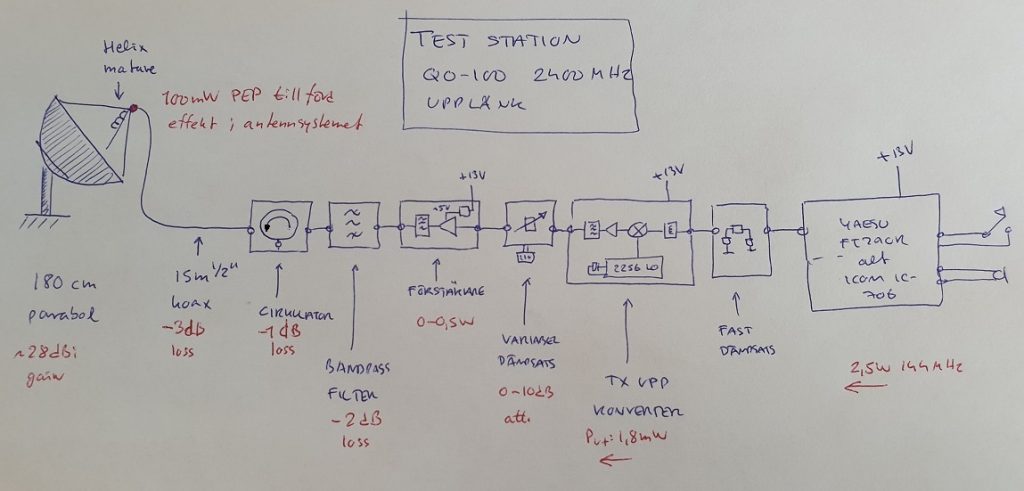 TEST STATION
QO-100 2400 MHz
UPPLÄNK
Helix
matare
100mW PEP tillförd
effekt i antennsystemet
180 cm
parabol
~28dBi
gain
15m 1/2"
koax
-3dB
loss
CIRKULATOR
-1dB
loss
BANDPASS
FILTER
-2dB
loss
+13V
+5V
FÖRSTÄRKARE
0-0,5W
VARIABEL
DÄMPSATS
0-10dB
att.
+13V
2256 LO
TX UPP
KONVERTER
Put: 1,8mW
FAST
DÄMPSATS
+13V
YAESU
FT290R
alt
ICOM IC-
706
2,5W 144MHz